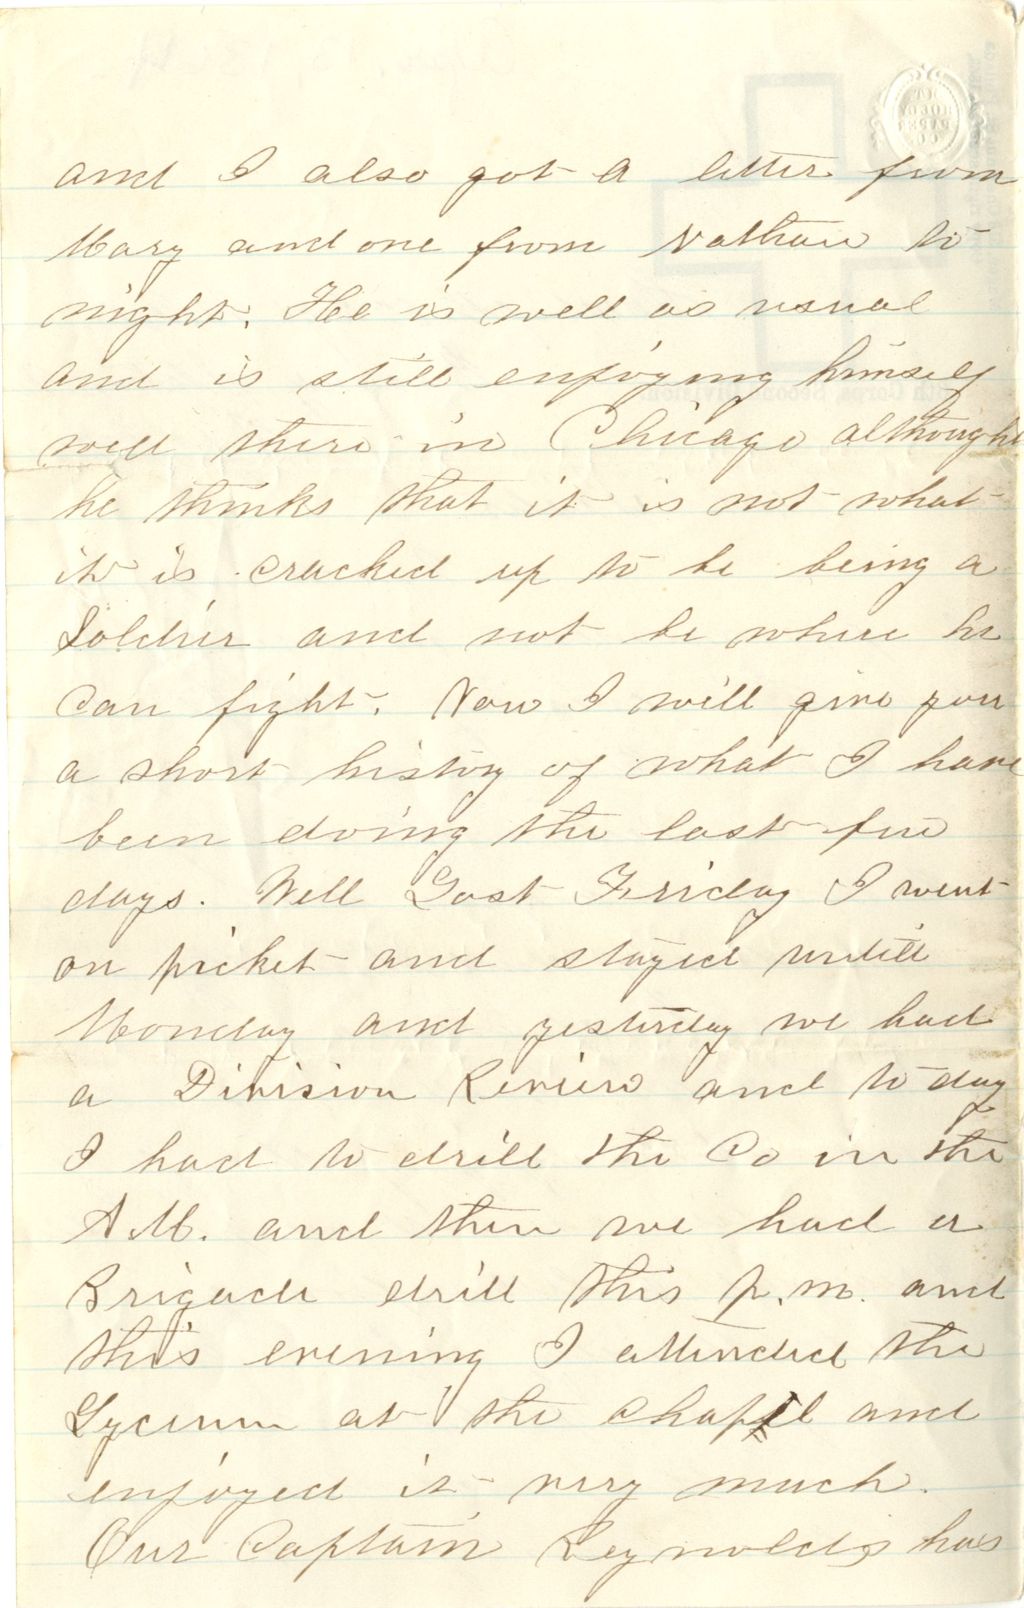 and I also got a letter from
Mary and one from Nathan to
night. He is well as usual
and is still enjoying himself
well there in Chicago although
he thinks that it is not what
it is cracked up to be being a
Soldier and not be where he
can fight. Now I will give you
a short history of what I have
been doing the last few
days. Well Last Friday I went
on picket and stayed untill
Monday and yesterday we had
a Division Review and to day
I had to drill the Co in the
A.M. and then we had a
Brigade drill this p.m. and
this evening I attended the
Lyceum at the Chapel and
enjoyed it very much.
Our Captain Reynolds has